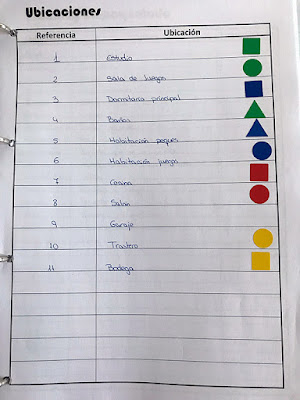 Ubicaciones
Referencia Ubicación
1 Estudio
2 Sala de juegos
3 Dormitorio principal
4 Baños
5 Habitación peques
6 Habitación juegos
7 Cocina
8 Salón
9 Garaje
10 Trastero
11 Bodega